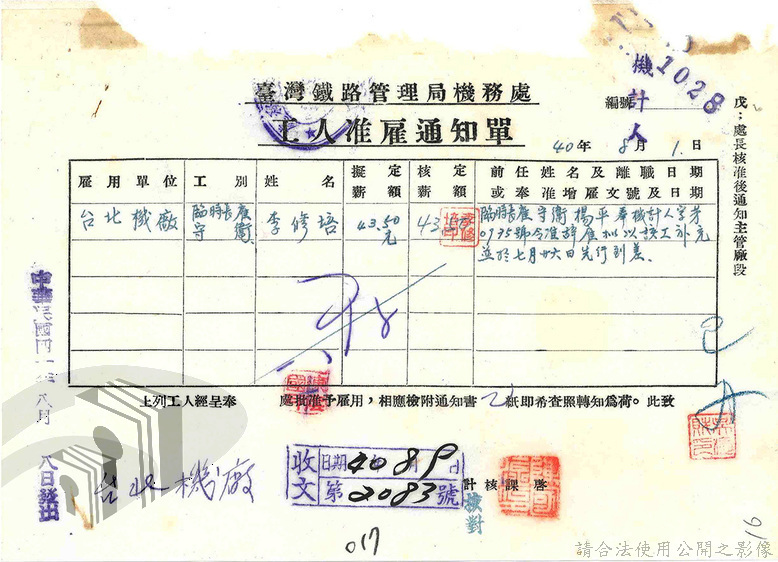 機計人
1028
臺灣鐵路管理局機務處
工人准雇通知單
編號
40年8月1日
戊:處長核准後通知主管廠段
雇用單位 工別 姓名 擬定薪額 核定薪額 前任姓名及離職日期或奉准增雇文號及日期
台北機廠 臨時長雇守衛 李修培 43.50元 43.50 臨時長雇守衛楊平奉機計人字第
0975號令准辭雇擬以該工補充
並於七月廿六日先行到差
上列工人經呈奉 處批准予雇用,相應檢附通知書 乙 紙即希查照轉知為荷。此致
台北機廠
計核課 啓
核對
收文
日期 40 8 9
第2083號
中華民國四十年八月八日發出
017
16
請合法使用公開之影像